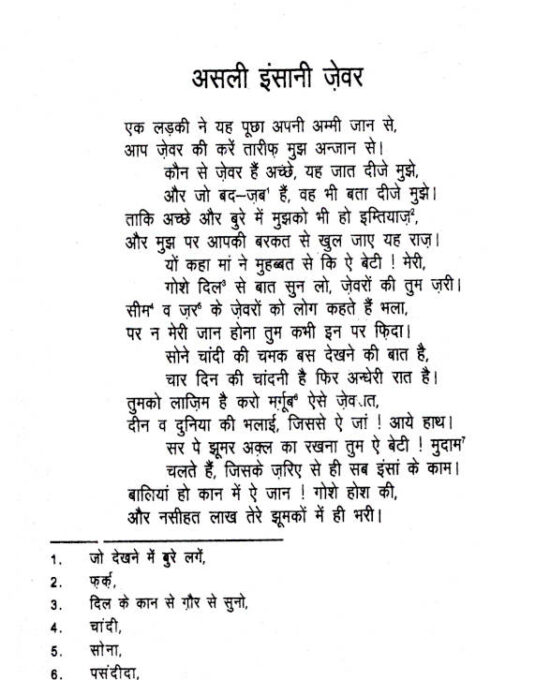 असली इंसानी ज़ेवर
एक लड़की ने यह पूछा अपनी अम्मी जान से,
आप ज़ेवर की करें तारीफ़ मुझ अन्जान से।
कौन से ज़ेवर हैं अच्छे, यह जात दीजे मुझे,
और जो बद–ज़ब¹ हैं, वह भी बता दीजे मुझे।
ताकि अच्छे और बुरे में मुझको भी हो इम्तियाज़²,
और मुझ पर आपकी बरकत से खुल जाए यह राज़।
यों कहा मां ने मुहब्बत से कि ऐ बेटी ! मेरी,
गोशे दिल³ से बात सुन लो, ज़ेवरों की तुम ज़री।
सीम⁴ व ज़र⁵ के ज़ेवरों को लोग कहते हैं भला,
पर न मेरी जान होना तुम कभी इन पर फ़िदा।
सोने चांदी की चमक बस देखने की बात है,
चार दिन की चांदनी है फिर अन्धेरी रात है।
तुमको लाज़िम है करो मर्ग़ूब⁶ ऐसे ज़ेवरात,
दीन व दुनिया की भलाई, जिससे ऐ जां ! आये हाथ।
सर पे झूमर अक़्ल का रखना तुम ऐ बेटी ! मुदाम⁷
चलते हैं, जिसके ज़रिए से ही सब इंसां के काम।
बालियां हो कान में ऐ जान ! गोशे होश की,
और नसीहत लाख तेरे झूमकों में ही भरी।
1. जो देखने में बुरे लगें,
2. फ़र्क़,
3. दिल के कान से ग़ौर से सुनो,
4. चांदी,
5. सोना,
6. पसंदीदा,